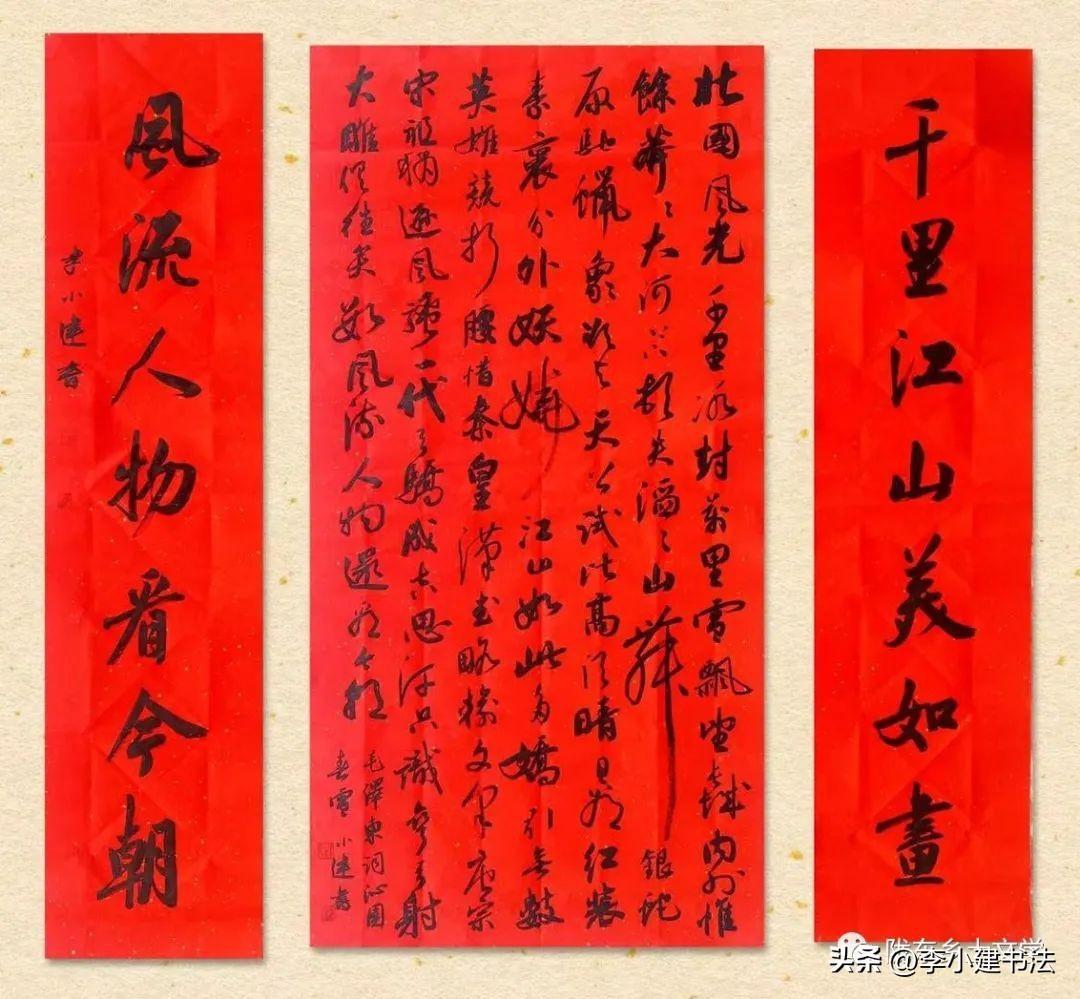 千里江山美如畫
北國風光千里冰封萬里雪飄望長城內外惟
餘莽々大河上下頓失滔々山舞銀蛇
原馳蠟象欲與天公試比高須晴日看紅裝
素裹分外妖嬈江山如此多嬌引無數
英雄競折腰惜秦皇漢武略輸文采唐宗
宋祖稍遜風騷一代天驕成吉思汗只識彎弓射
大雕俱往矣數風流人物還看今朝
毛澤東詞沁園
春雪 小建書
風流人物看今朝
李小建書
陇东乡土文学
头条 @李小建书法